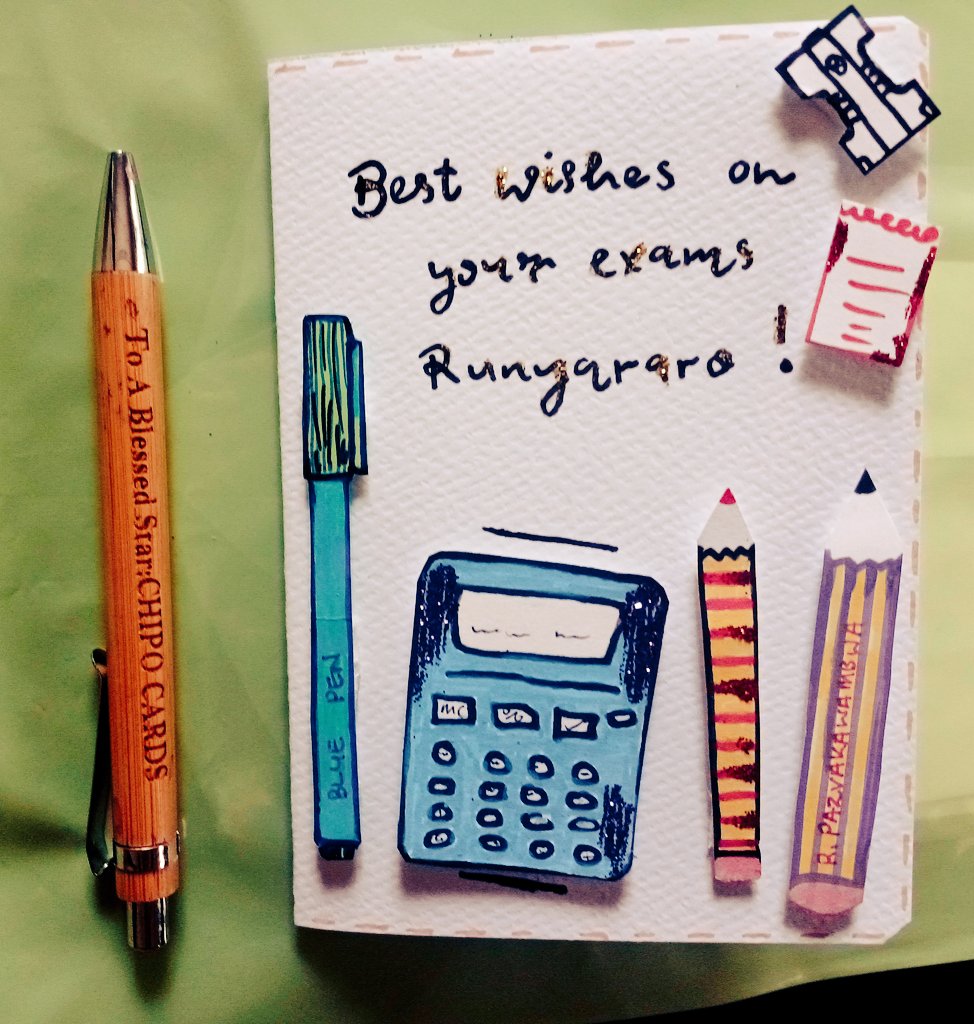 To A Blessed Star:CHIPO CARDS
Best wishes on
your exams
Runyararo !
BLUE PEN
MC
R. PAZVAKAWAMBWA